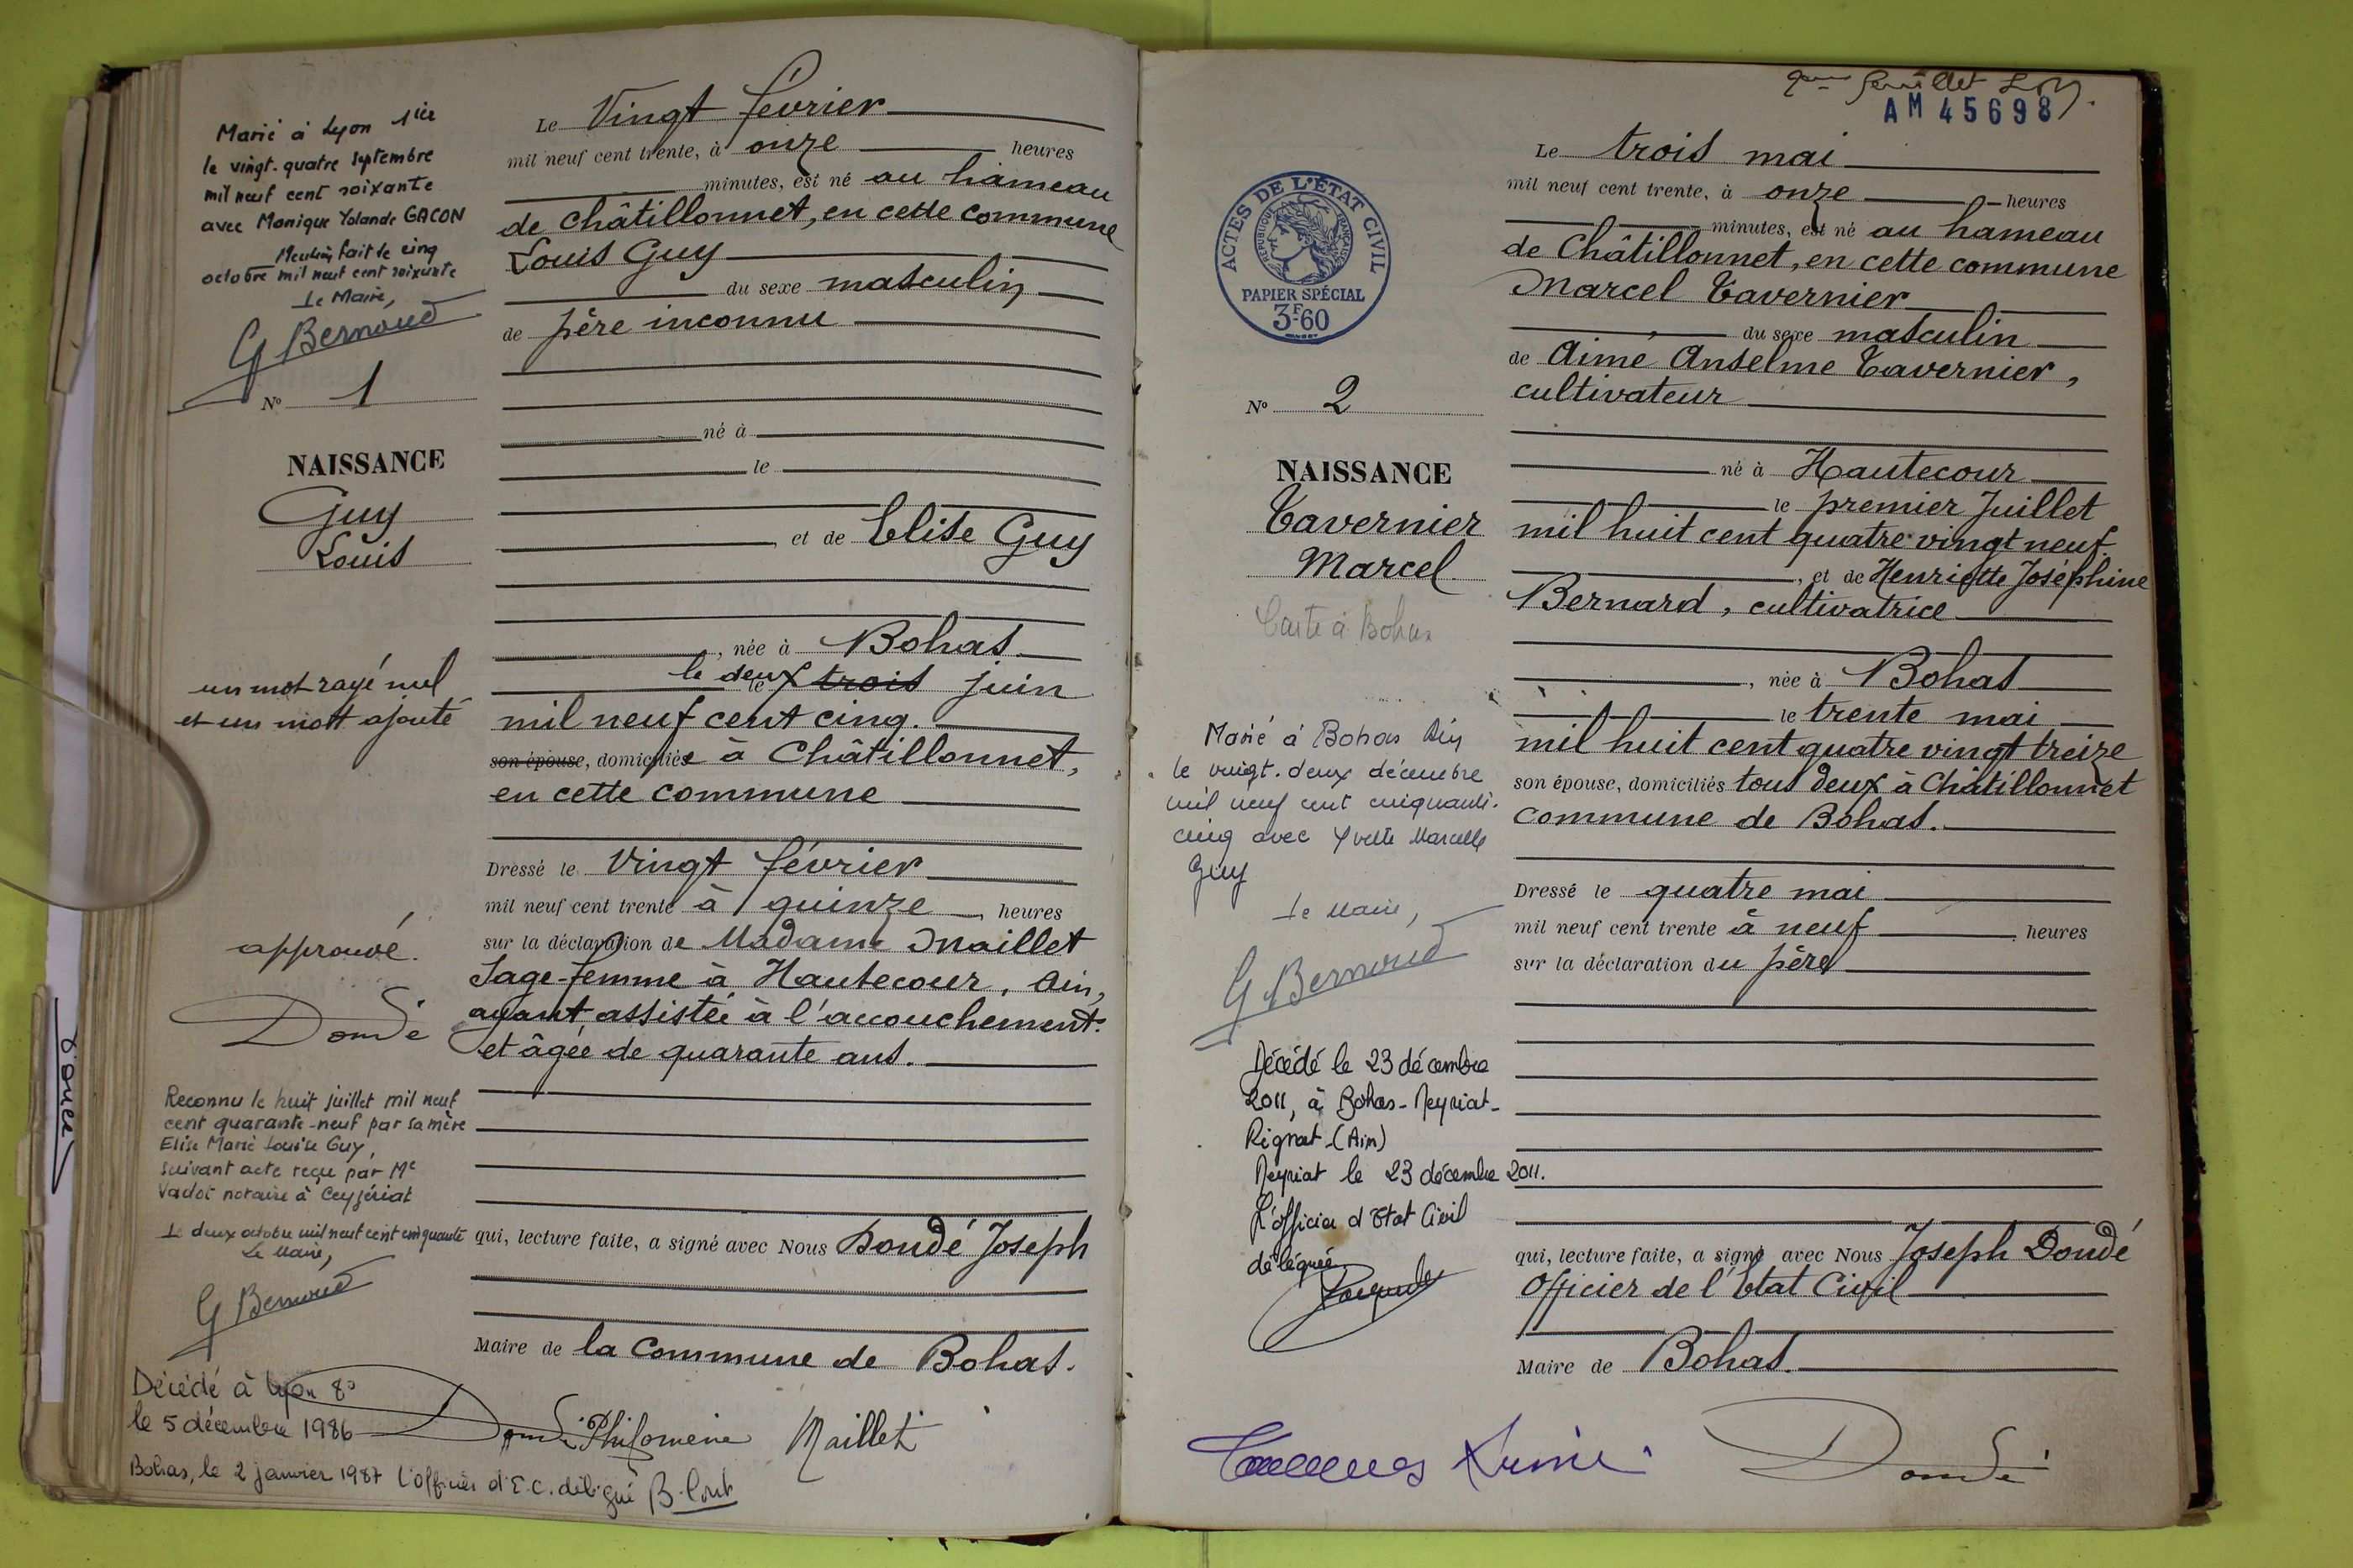 Marié à Lyon 1ier
le vingt-quatre septembre
mil neuf cent soixante
avec Monique Yolande GACON
Mention fait le cinq
octobre mil neuf cent soixante
Le Maire,
G Bernoud
N° 1
NAISSANCE
Guy
Louis
un mot rayé nul
et un mot ajouté
approuvé.
Dondé
Reconnu le huit juillet mil neuf
cent quarante-neuf par sa mère
Elise Marie Louise Guy,
suivant acte reçu par Me
Vadot notaire à Ceyzériat
Le deux octobre mil neuf cent cinquante
Le Maire,
G Bernoud
Décédé à Lyon 8°
le 5 décembre 1986
Bohas, le 2 janvier 1987 L'officier d'E.C. délégué
Le Vingt février
mil neuf cent trente, à onze heures
minutes, est né au hameau
de Châtillonnet, en cette commune
Louis Guy
du sexe masculin
de père inconnu
né à
le
et de Elise Guy
, née à Bohas
le deux
le trois juin
mil neuf cent cinq.
son épouse, domiciliée à Châtillonnet,
en cette commune
Dressé le vingt février
mil neuf cent trente à quinze heures
sur la déclaration de Madame Maillet
Sage-femme à Hautecour, Ain,
ayant assistée à l'accouchement.
et âgée de quarante ans.
qui, lecture faite, a signé avec Nous Dondé Joseph
Maire de la commune de Bohas.
Dondé Philomène Maillet
feuillet
AM 45698
ACTES DE L'ÉTAT CIVIL
RÉPUBLIQUE FRANÇAISE
PAPIER SPÉCIAL
3F60
N° 2
NAISSANCE
Tavernier
Marcel
Carte à Bohas
Marié à Bohas Ain
le vingt-deux décembre
mil neuf cent cinquante-
cinq avec Yvette Marcelle
Guy
Le Maire,
G Bernoud
Décédé le 23 décembre
2011, à Bohas-Meyriat-
Rignat (Ain)
Meyriat le 23 décembre 2011.
L'officier d'Etat Civil
déléguée
Le trois mai
mil neuf cent trente, à onze heures
minutes, est né au hameau
de Châtillonnet, en cette commune
Marcel Tavernier
du sexe masculin
de Aimé Anselme Tavernier,
cultivateur
né à Hautecour
le premier Juillet
mil huit cent quatre vingt neuf
, et de Henriette Joséphine
Bernard, cultivatrice
, née à Bohas
le trente mai
mil huit cent quatre vingt treize
son épouse, domiciliés tous deux à Châtillonnet
commune de Bohas.
Dressé le quatre mai
mil neuf cent trente à neuf heures
sur la déclaration du père
qui, lecture faite, a signé avec Nous Joseph Dondé
Officier de l'Etat Civil
Maire de Bohas.
Dondé